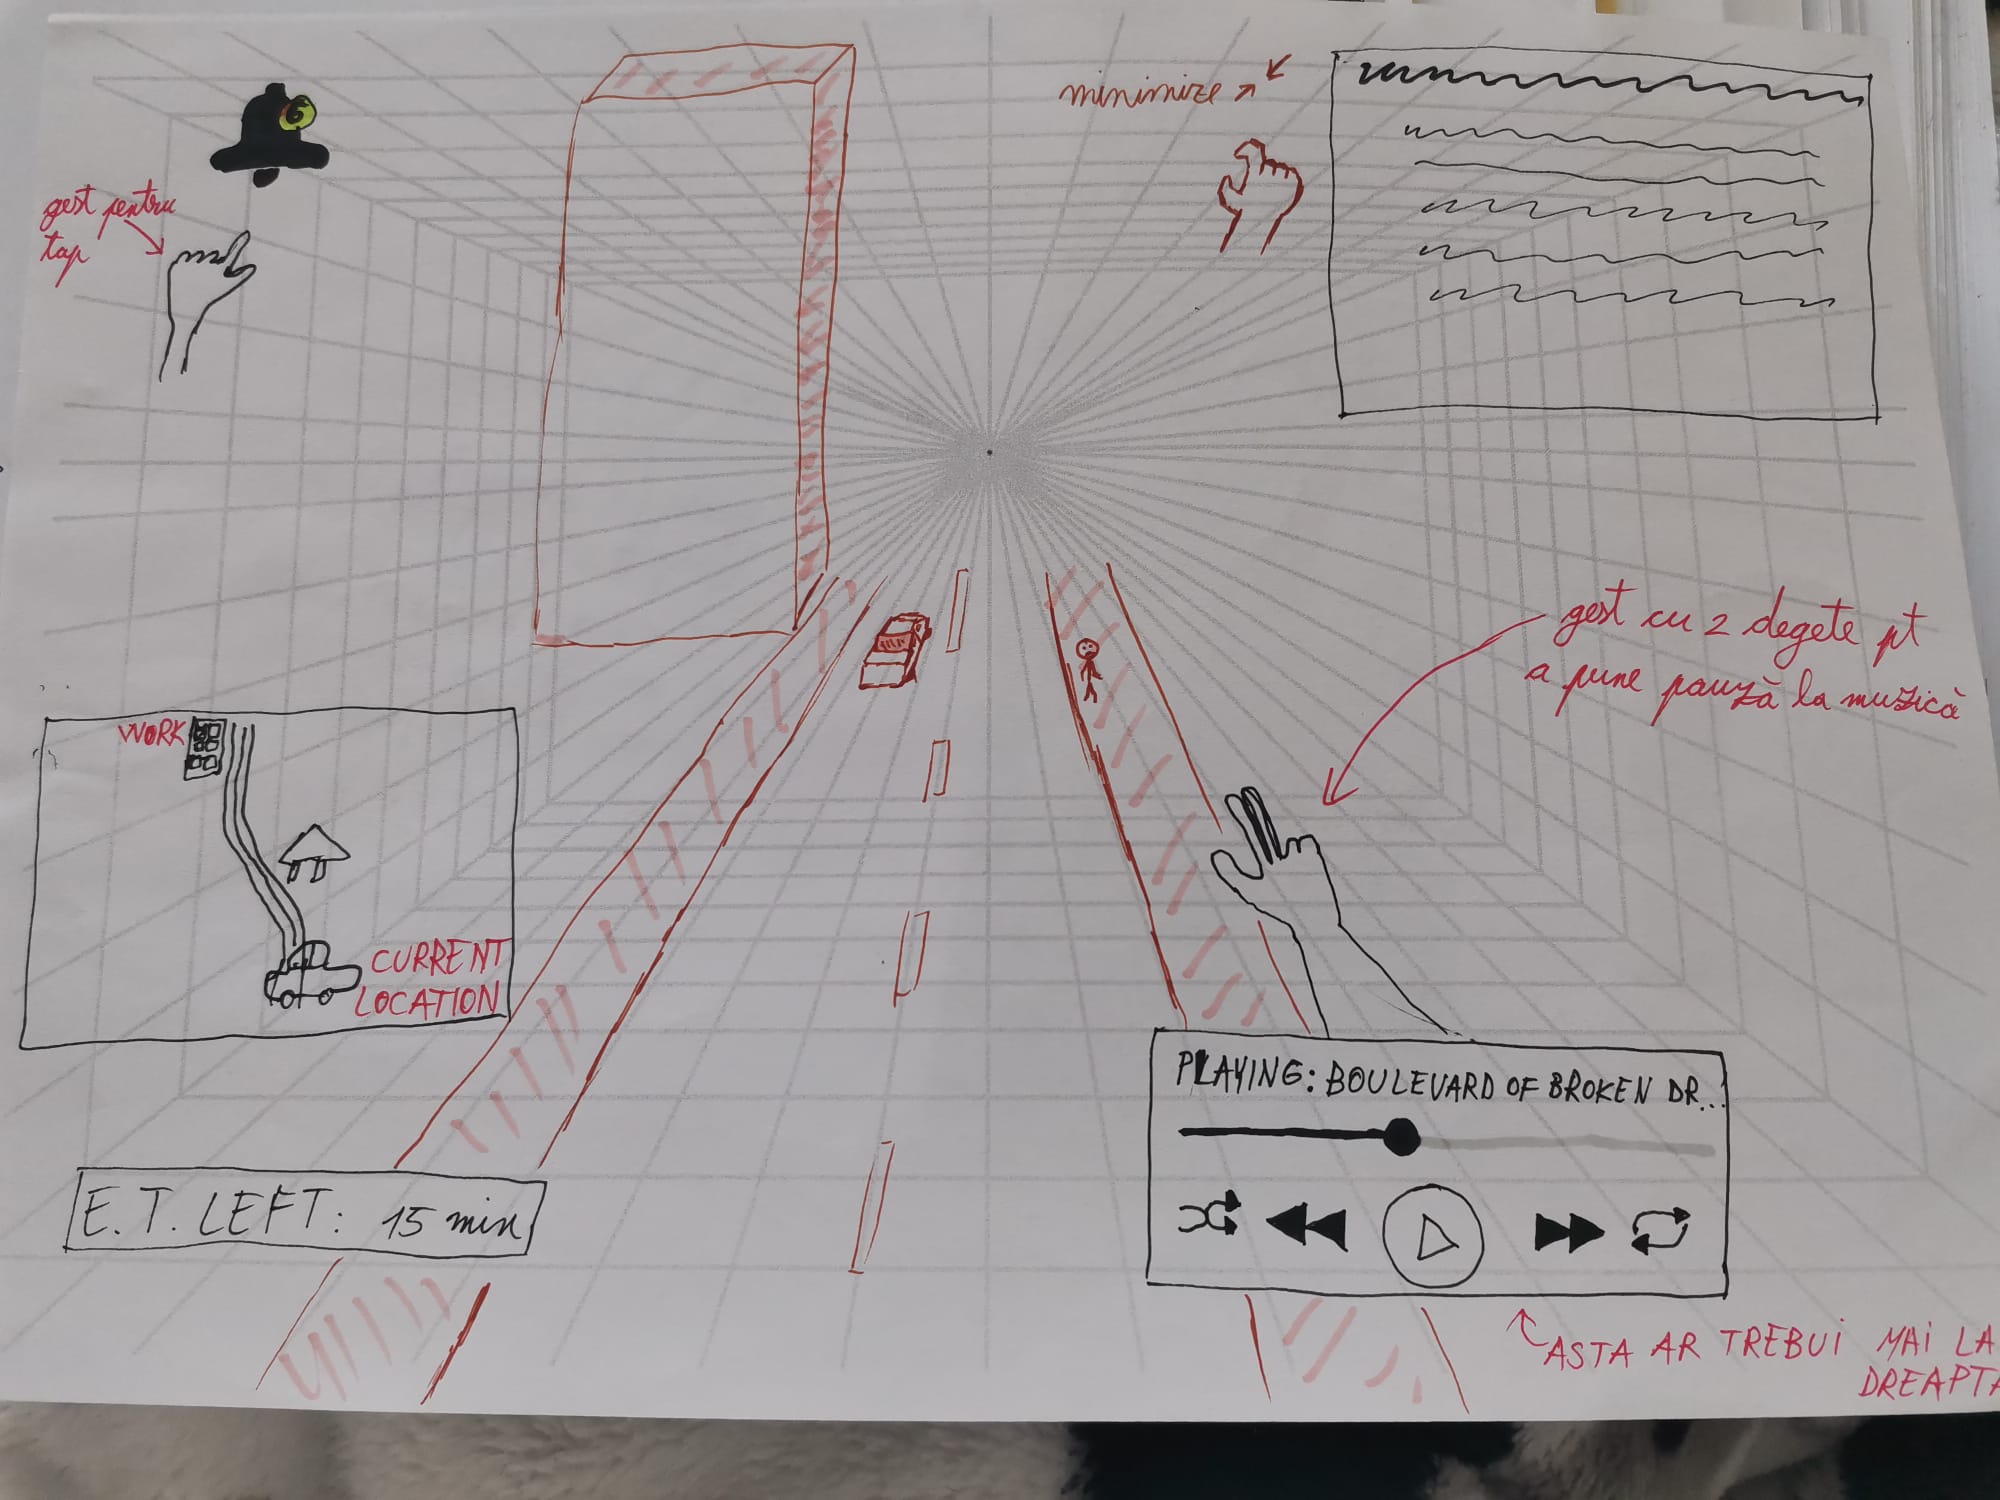 6
minimize
gest pentru
tap
gest cu 2 degete pt
a pune pauză la muzică
WORK
CURRENT
LOCATION
E. T. LEFT: 15 min
PLAYING: BOULEVARD OF BROKEN DR...
ASTA AR TREBUI MAI LA
DREAPTA